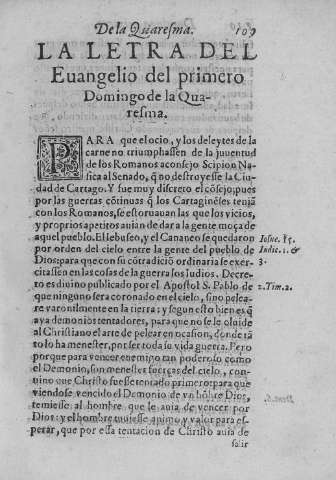 De la Quaresma. 109
LA LETRA DEL
Euangelio del primero
Domingo de la Qua-
resma.
PARA que el ocio, y los deleytes de la
carne no triumphassen de la juuentud
de los Romanos aconsejo Scipion Na-
sica al Senado, q̃ no destruyesse la Ciu-
dad de Cartago. Y fue muy discreto el cõsejo, pues
por las guerras cõtinuas q̃ los Cartagineses teniã
con los Romanos, se estoruauan las que los vicios,
y proprios apetitos auian de dar a la gente moça de
aquel pueblo. El Iebuseo, y el Cananeo se quedaron
por orden del cielo entre la gente del pueblo de
Dios: para que con su cõtradiciõ ordinaria se exer-
citassen en las cosas de la guerra los Iudios. Decre-
to es diuino publicado por el Apostol S. Pablo de
que ninguno sera coronado en el cielo, sino pelea-
re varonilmente en la tierra; y segun esto bien es q̃
aya demonios tentadores, para que no se le oluide
al Christiano el arte de pelear en ocasion, donde tã
to lo ha menester, por ser toda su vida guerra. Pero
porque para vencer enemigo tan poderoso como
el Demonio, son menester fuerças del cielo, con-
uino que Christo fuesse tentado primero: para que
viendose vencido el Demonio de vn hõbre Dios,
temiesse al hombre que le auia de vencer por
Dios: y el hombre tuuiesse animo y valor para es-
perar, que por essa tentacion de Christo auia de
salir
Iosue. 15.
Iudic. 1. &
3.
2. Tim. 2.